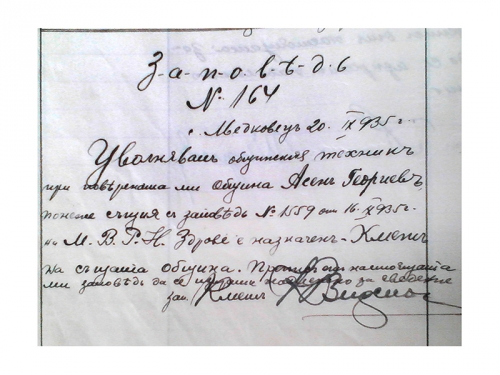 З-а-п-о-в-ѣ-д-ь
№. 164
с. Медковецъ 20. IX 935 г.
Уволнявамъ общинския техникъ
при повѣрената ми община Асенъ Георгиевъ,
понеже сѫщия съ заповѣдь № 1559 отъ 16. IX 935 г.
на М. В. Р. Н. Здраве е назначенъ - Кметъ
на сѫщата община. Препис отъ настоящата
ми заповѣдь да се за сведение
зап. Кметъ